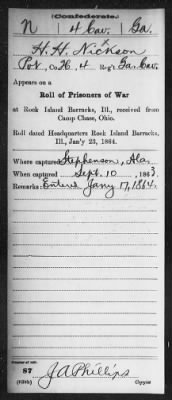 (Confederate.)
N 4 Cav. Ga.
H. H. Nickson
Pvt, Co. H, 4 Reg't Ga. Cav.
Appears on a
Roll of Prisoners of War
at Rock Island Barracks, Ill., received from
Camp Chase, Ohio.
Roll dated Headquarters Rock Island Barracks,
Ill., Jan'y 23, 1864.
Where captured Stephenson, Ala.
When captured Sept. 10, 1863.
Remarks: Entered Jany 17, 1864.
Number of roll:
87
J A Phillips
Copyist.